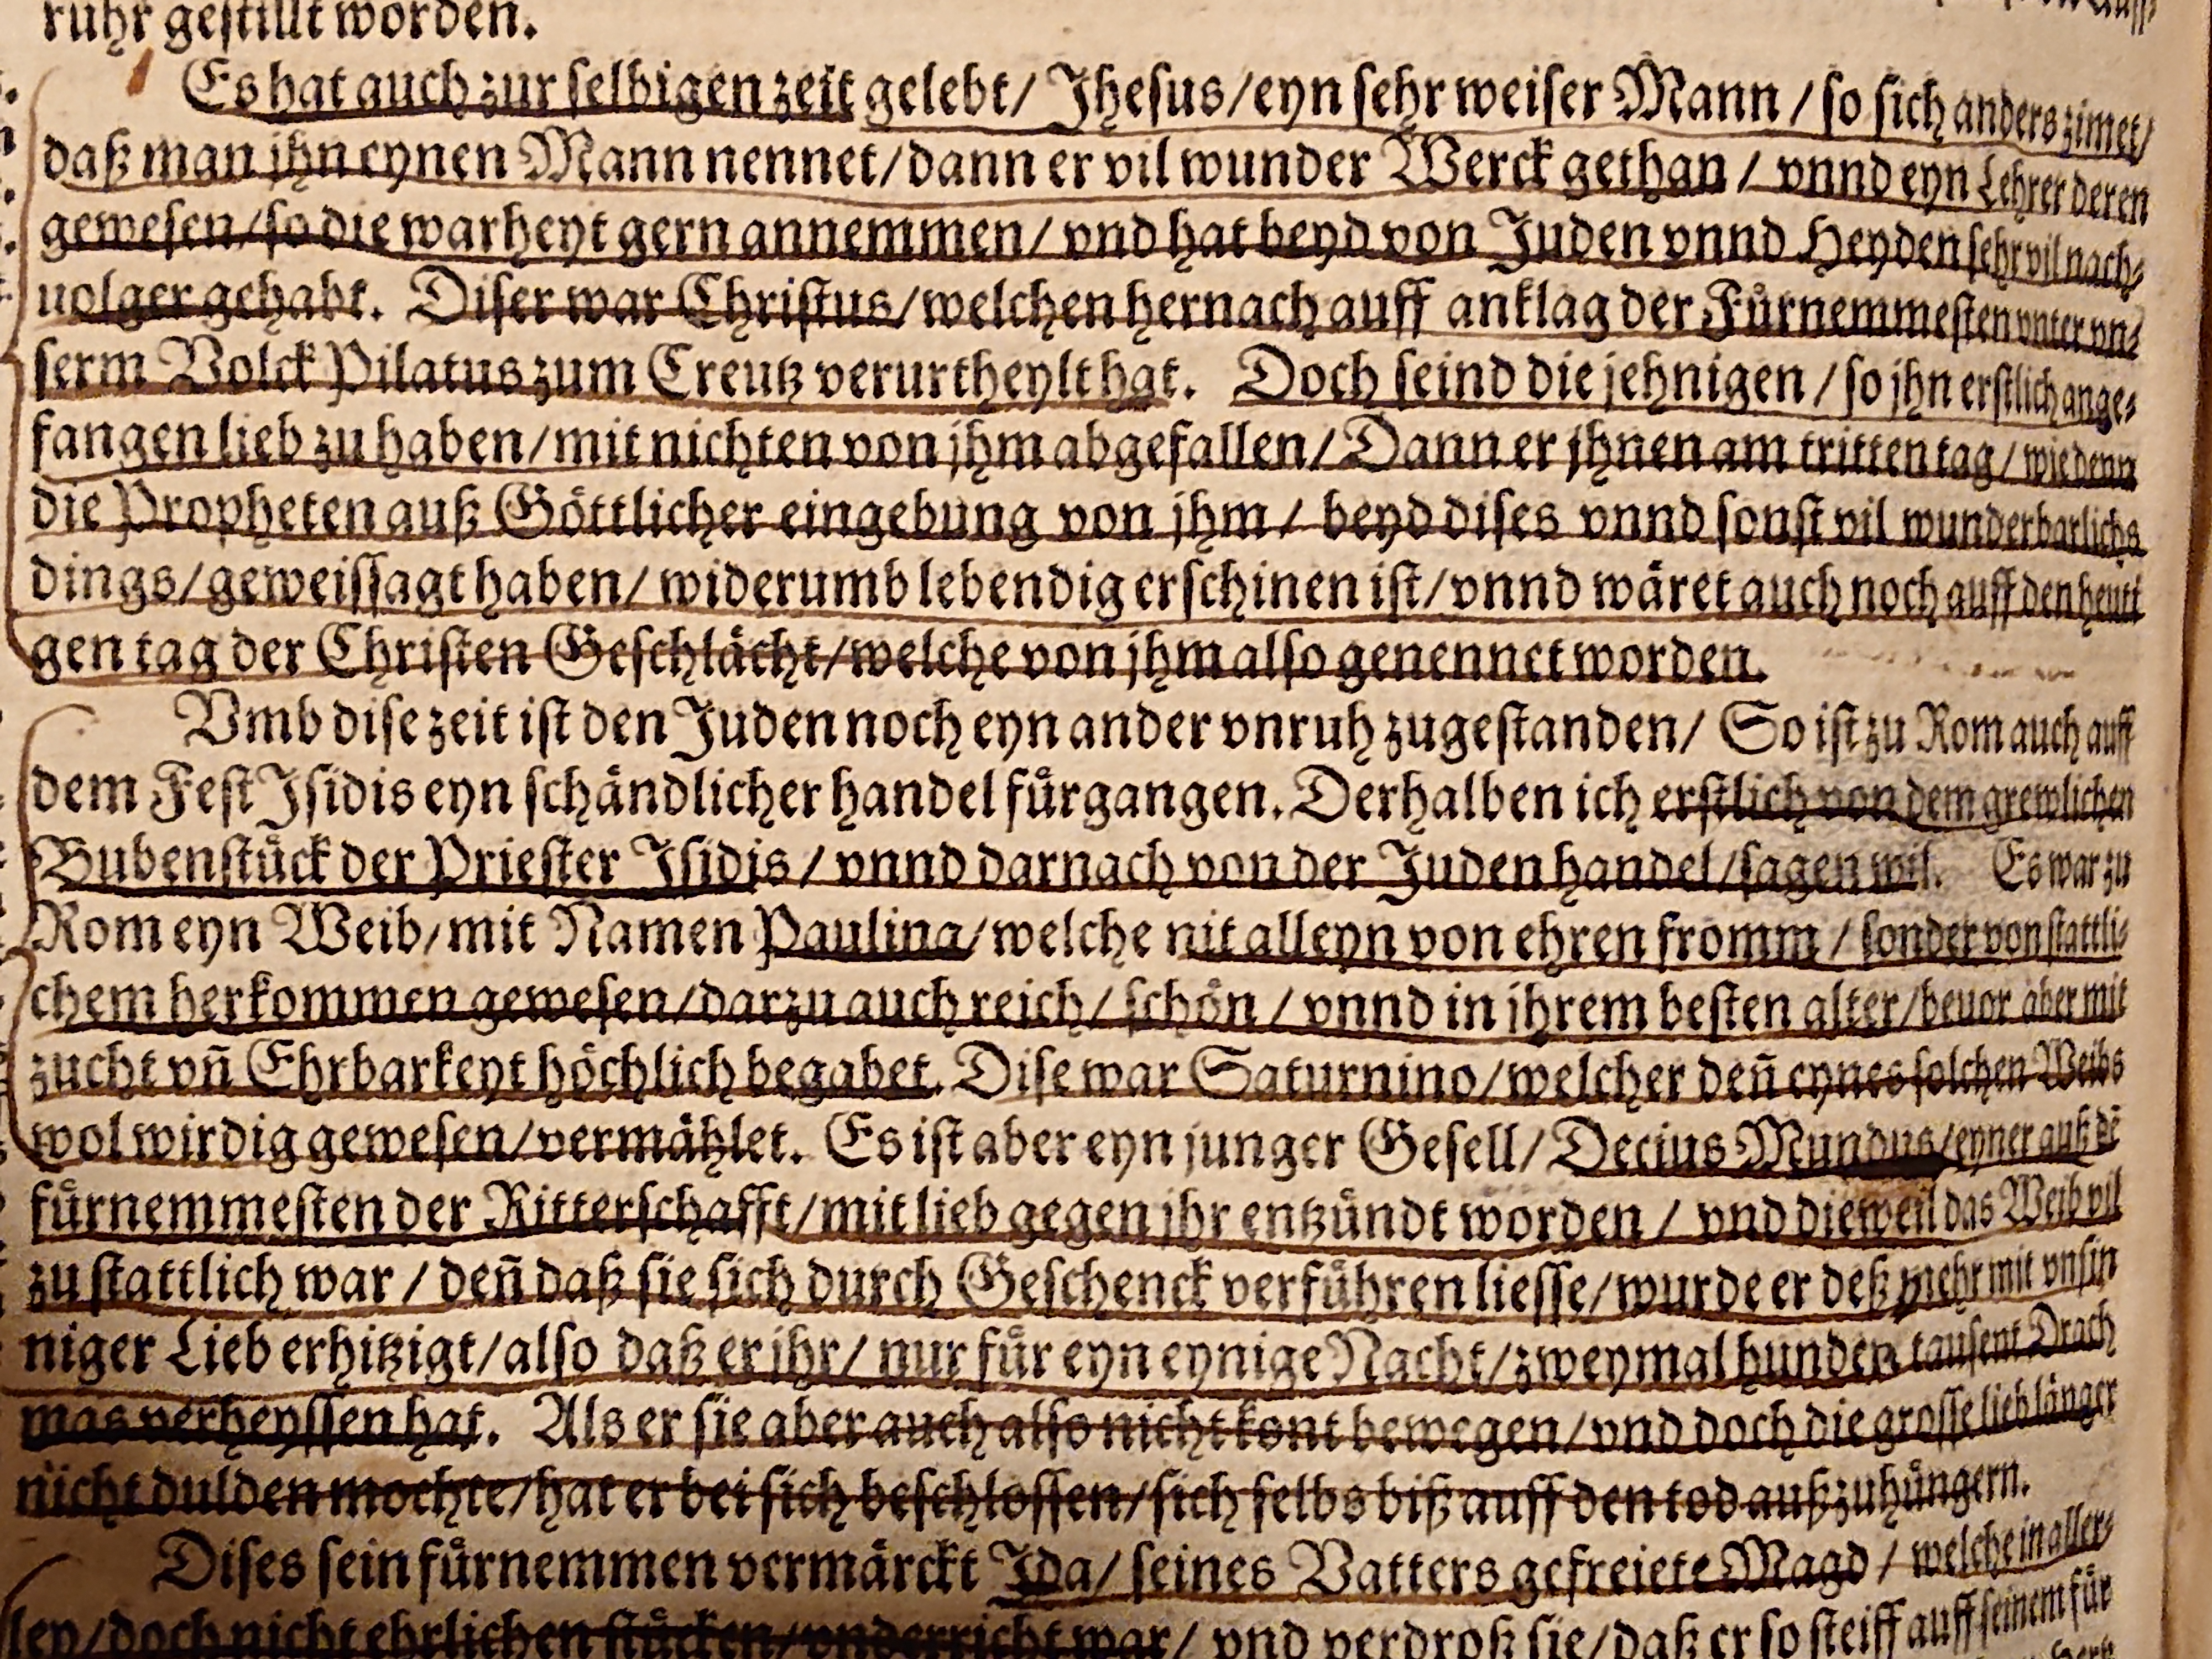 ruhr gestillt worden.
Es hat auch zur selbigen zeit gelebt/ Jhesus/eyn sehr weiser Mann/so sich anders zimet/
daß man jhn eynen Mann nennet/dann er vil wunder Werck gethan/ vnnd eyn Lehrer deren
gewesen/so die warheyt gern annemmen/ vnd hat beyd von Juden vnnd Heyden sehr vil nach⸗
uolger gehabt. Diser war Christus/welchen hernach auff anklag der Fůrnemmesten vnter vn⸗
serm Volck Pilatus zum Creutz verurtheylt hat. Doch seind die jehnigen/so jhn erstlich ange⸗
fangen lieb zu haben/mit nichten von jhm abgefallen/Dann er jhnen am tritten tag/ wie denn
die Propheten auß Gőttlicher eingebung von jhm/ beyd dises vnnd sonst vil wunderbarlichs
dings/geweissagt haben/ widerumb lebendig erschinen ist/vnnd wäret auch noch auff den heuti
gen tag der Christen Geschlächt/welche von jhm also genennet worden.
Vmb dise zeit ist den Juden noch eyn ander vnruh zugestanden/ So ist zu Rom auch auff
dem Fest Isidis eyn schändlicher handel fůrgangen. Derhalben ich erstlich von dem grewlichen
Bubenstůck der Priester Isidis/ vnnd darnach von der Juden handel/sagen wil. Es war zu
Rom eyn Weib/mit Namen Paulina/welche nit alleyn von ehren fromm/ sonder von stattli⸗
chem herkommen gewesen/darzu auch reich/ schőn/ vnnd in jhrem besten alter/beuor aber mit
zucht vñ Ehrbarkeyt hőchlich begabet. Dise war Saturnino/welcher deñ eynes solchen Weibs
wol wirdig gewesen/vermåhlet. Es ist aber eyn junger Gesell/Decius Mundus/eyner auß dē
fůrnemmesten der Ritterschafft/mit lieb gegen jhr entzůndt worden/ vnd dieweil das Weib vil
zu stattlich war/ deñ daß sie sich durch Geschenck verfůhren liesse/wurde er deß mehr mit vnsin
niger Lieb erhitzigt/also daß er jhr/ nur fůr eyn eynige Nacht/zweymal hundert tausent Drach
mas verheyssen hat. Als er sie aber auch also nicht kont bewegen/vnd doch die grosse lieb länger
nicht dulden mochte/hat er bei sich beschlossen/sich selbs biß auff den tod außzuhůngern.
Dises sein fůrnemmen vermärckt Ida/ seines Vatters gefreiete Magd/ welche in aller⸗
ley/doch nicht ehrlichen stůcken/vnderricht war/ vnd verdroß sie/daß er so steiff auff seinem fůr